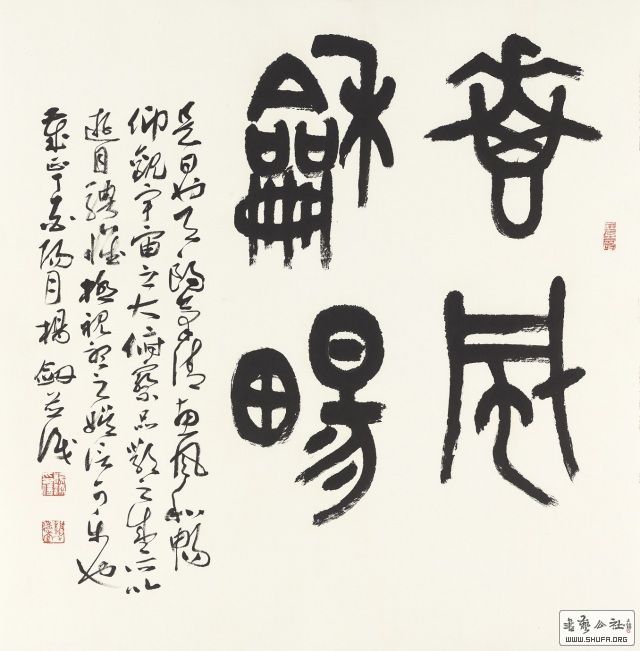 惠風
龢暢
是日也天朗氣清惠風和暢
仰觀宇宙之大俯察品類之盛所以
遊目騁懷極視聽之娛信可樂也
歲在丁酉陽月楊劍識
書藝公社
WWW.SHUFA.ORG